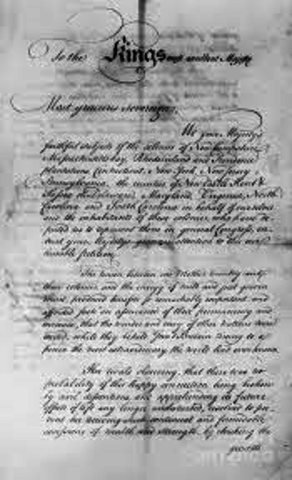 To the Kings most excellent Majesty
Most gracious sovereign,
We your Majesty's
faithful subjects of the colonies of Newhampshire,
Massachusetts bay, Rhodeisland and Providence
plantations, Connecticut, New York, New Jersey,
Pennsylvania, the counties of New Castle Kent &
Sussex on Delaware, Maryland, Virginia, North
Carolina and South Carolina in behalf of ourselves
and the inhabitants of these colonies, who have de-
puted us to represent them in general Congress, en-
treat your Majestys gracious attention to this our
humble petition.
The union between our Mother country and
these colonies, and the energy of mild and just govern-
ment, produced benefits so remarkably important, and
afforded such an assurance of their permanency and
increase, that the wonder and envy of other Nations were
excited, while they beheld Great Britain riseing to a
power the most extraordinary the world had ever known.
Her rivals observing, that there was no
probability of this happy connection being broken
by civil dissensions, and apprehending its future
effects, if left any longer undisturbed, resolved to pre-
vent her receiving such continual and formidable
accessions of wealth and strength, by checking the